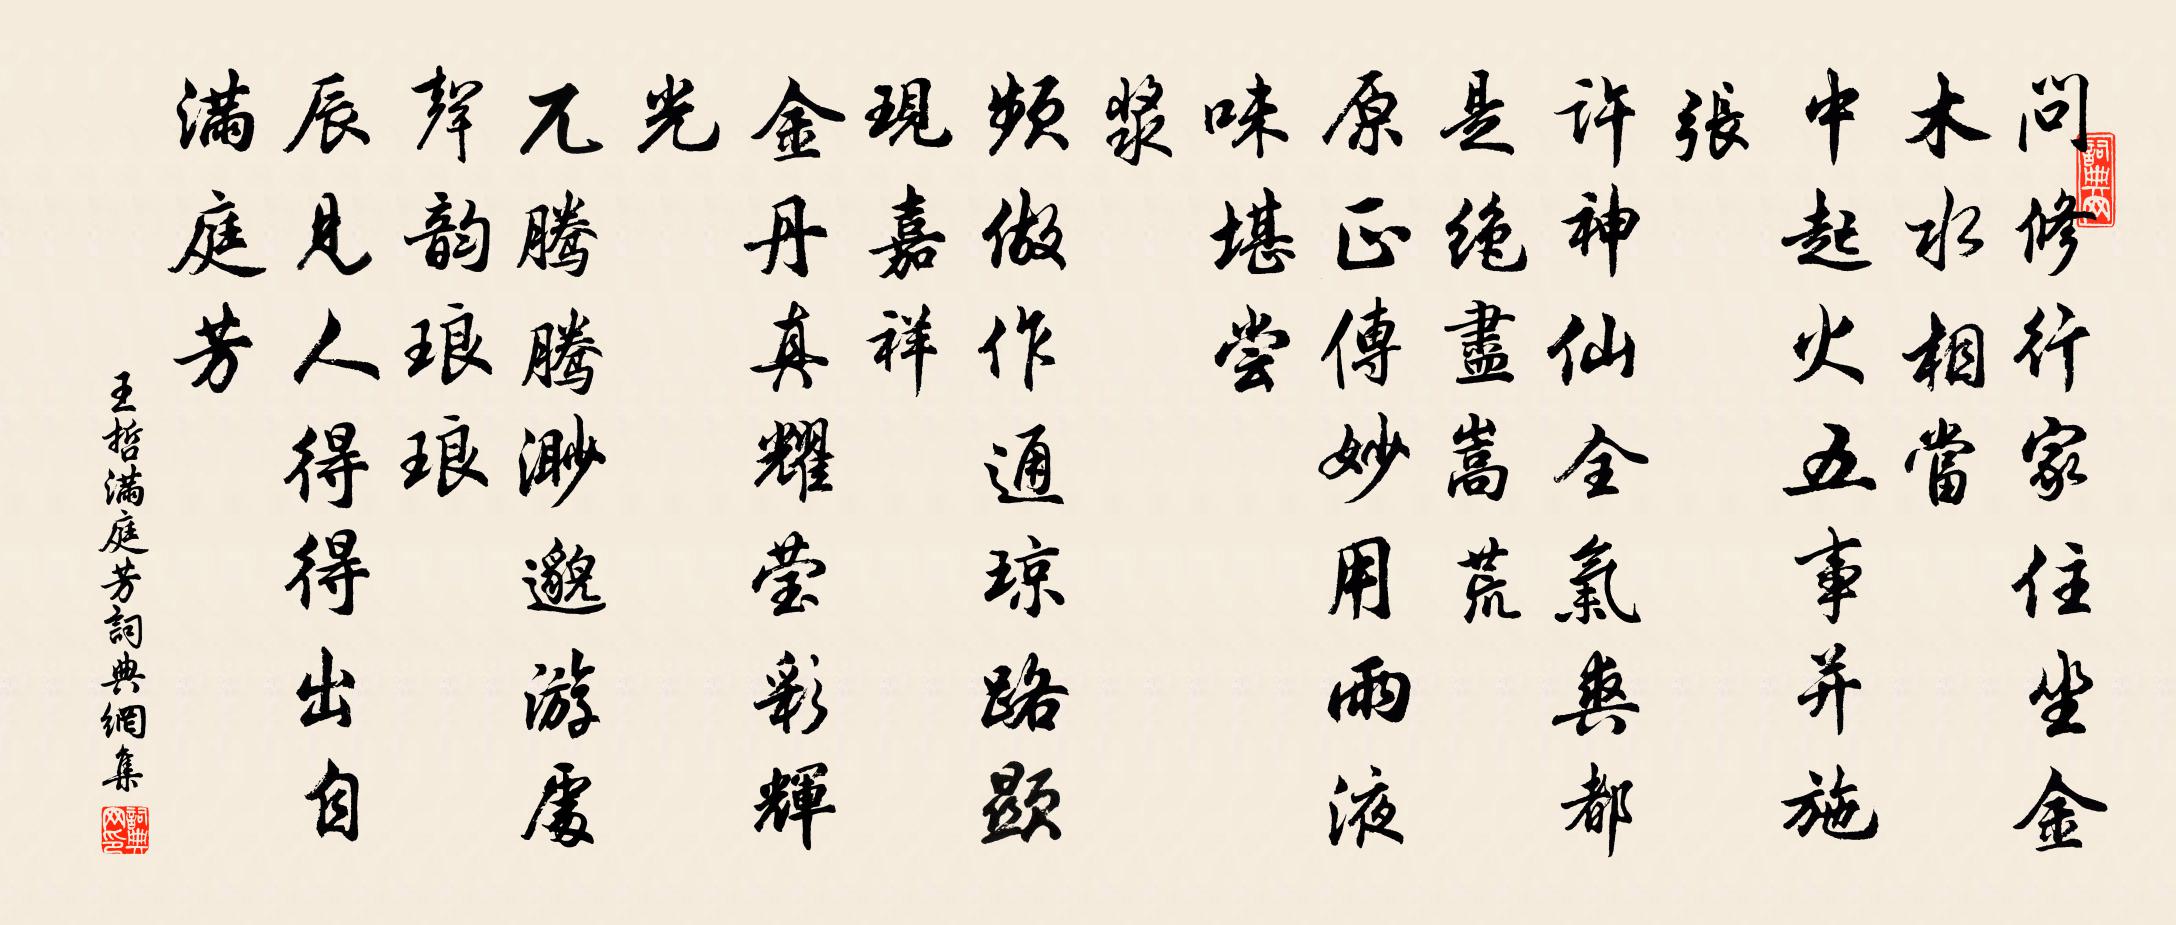 問修行家住坐金
木水相當
中起火五事并施
張
許神仙全氣爽都
是绝盡嵩荒
原正傳妙用雨液
味堪尝
漿
頻做作通琼路顯
現嘉祥
金丹真耀莹彩輝
光
兀騰騰渺邈游處
聲韵琅琅
辰見人得得出自
滿庭芳
王哲滿庭芳詞典網集
詞典网
詞典网印